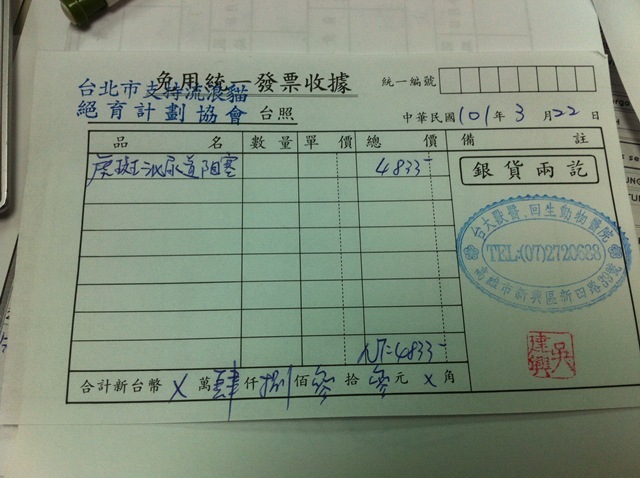 免用統一發票收據
統一編號
台北市支持流浪貓
絕育計劃協會 台照
中華民國 101 年 3 月 22 日
品 名 數量 單 價 總 價 備 註
虎斑泌尿道阻塞 4833-
銀貨兩訖
台大獸醫.回生動物醫院
TEL:(07)2720688
高雄市新興區新田路39號
吳建興
NT=4833-
合計新台幣 X 萬 肆 仟 捌 佰 零 拾 零 元 X 角